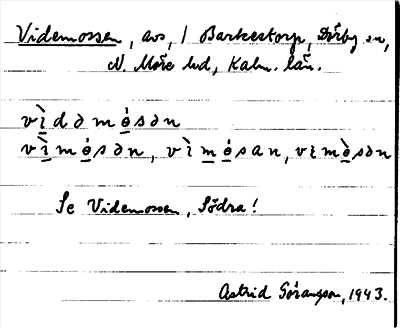 Videmossen, avs, / Barkestorp, Dörby sn,
N. Möre hd, Kalm. län.
vìdəmósən
vìmósən, vìmósan, vɛmòsən
Se Videmossen, Södra!
Astrid Göransson, 1943.